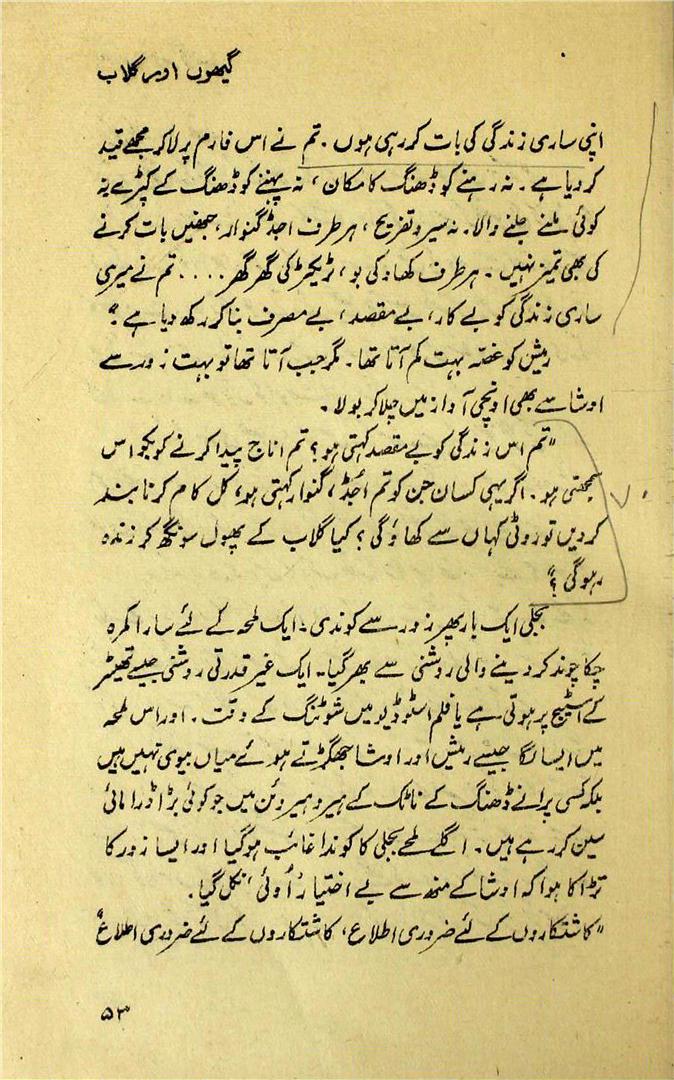 گیہوں اور گلاب
اپنی ساری زندگی کی بات کر رہی ہوں ۔ تم نے اس فارم پر لا کر مجھے قید
کر دیا ہے ۔ نہ رہنے کو ڈھنگ کا مکان ، نہ پہننے کو ڈھنگ کے کپڑے نہ
کوئی ملنے جلنے والا۔ نہ سیر و تفریح ، ہر طرف اجڈ گنوار، جنھیں بات کرنے
کی بھی تمیز نہیں ۔ ہر طرف کھاد کی بو ، ٹریکٹر کی گھر گھر .... تم نے میری
ساری زندگی کو بے کار، بے مقصد ، بے مصرف بنا کر رکھ دیا ہے "
رمیش کو غصّہ بہت کم آتا تھا ۔ مگر جب آتا تھا تو بہت زور سے
اوشا سے بھی اونچی آواز میں چلا کر بولا ۔
" تم اس زندگی کو بے مقصد کہتی ہو ؟ تم اناج پیدا کرنے کو بکواس
سمجھتی ہو ۔ اگر یہی کسان جن کو تم اُجڈ ، گنوار کہتی ہو ، کل کام کرنا بند
کر دیں تو روٹی کہاں سے کھاؤ گی ؟ کیا گلاب کے پھول سونگھ کر زندہ
رہو گی ؟"
بجلی ایک بار پھر زور سے کوندی ۔ ایک لمحہ کے لئے سارا کمرہ
چکا چوند کر دینے والی روشنی سے بھر گیا ۔ ایک غیر قدرتی روشنی جیسے تھیٹر
کے اسٹیج پر ہوتی ہے یا فلم اسٹوڈیو میں شوٹنگ کے وقت ۔ اور اس لمحہ
میں ایسا لگا جیسے رمیش اور اوشا جھگڑتے ہوئے میاں بیوی نہیں ہیں
بلکہ کسی پرانے ڈھنگ کے ناٹک کے ہیرو ہیروئن میں جو کوئی بڑا ڈرامائی
سین کر رہے ہیں ۔ اگلے لمحے بجلی کا کوندا غائب ہو گیا اور ایسا زور کا
تڑاکا ہوا کہ اوشا کے منھ سے بے اختیار 'اُوئی' نکل گیا ۔
" کاشتکاروں کے لئے ضروری اطلاع ، کاشتکاروں کے لئے ضروری اطلاع "
۵۳